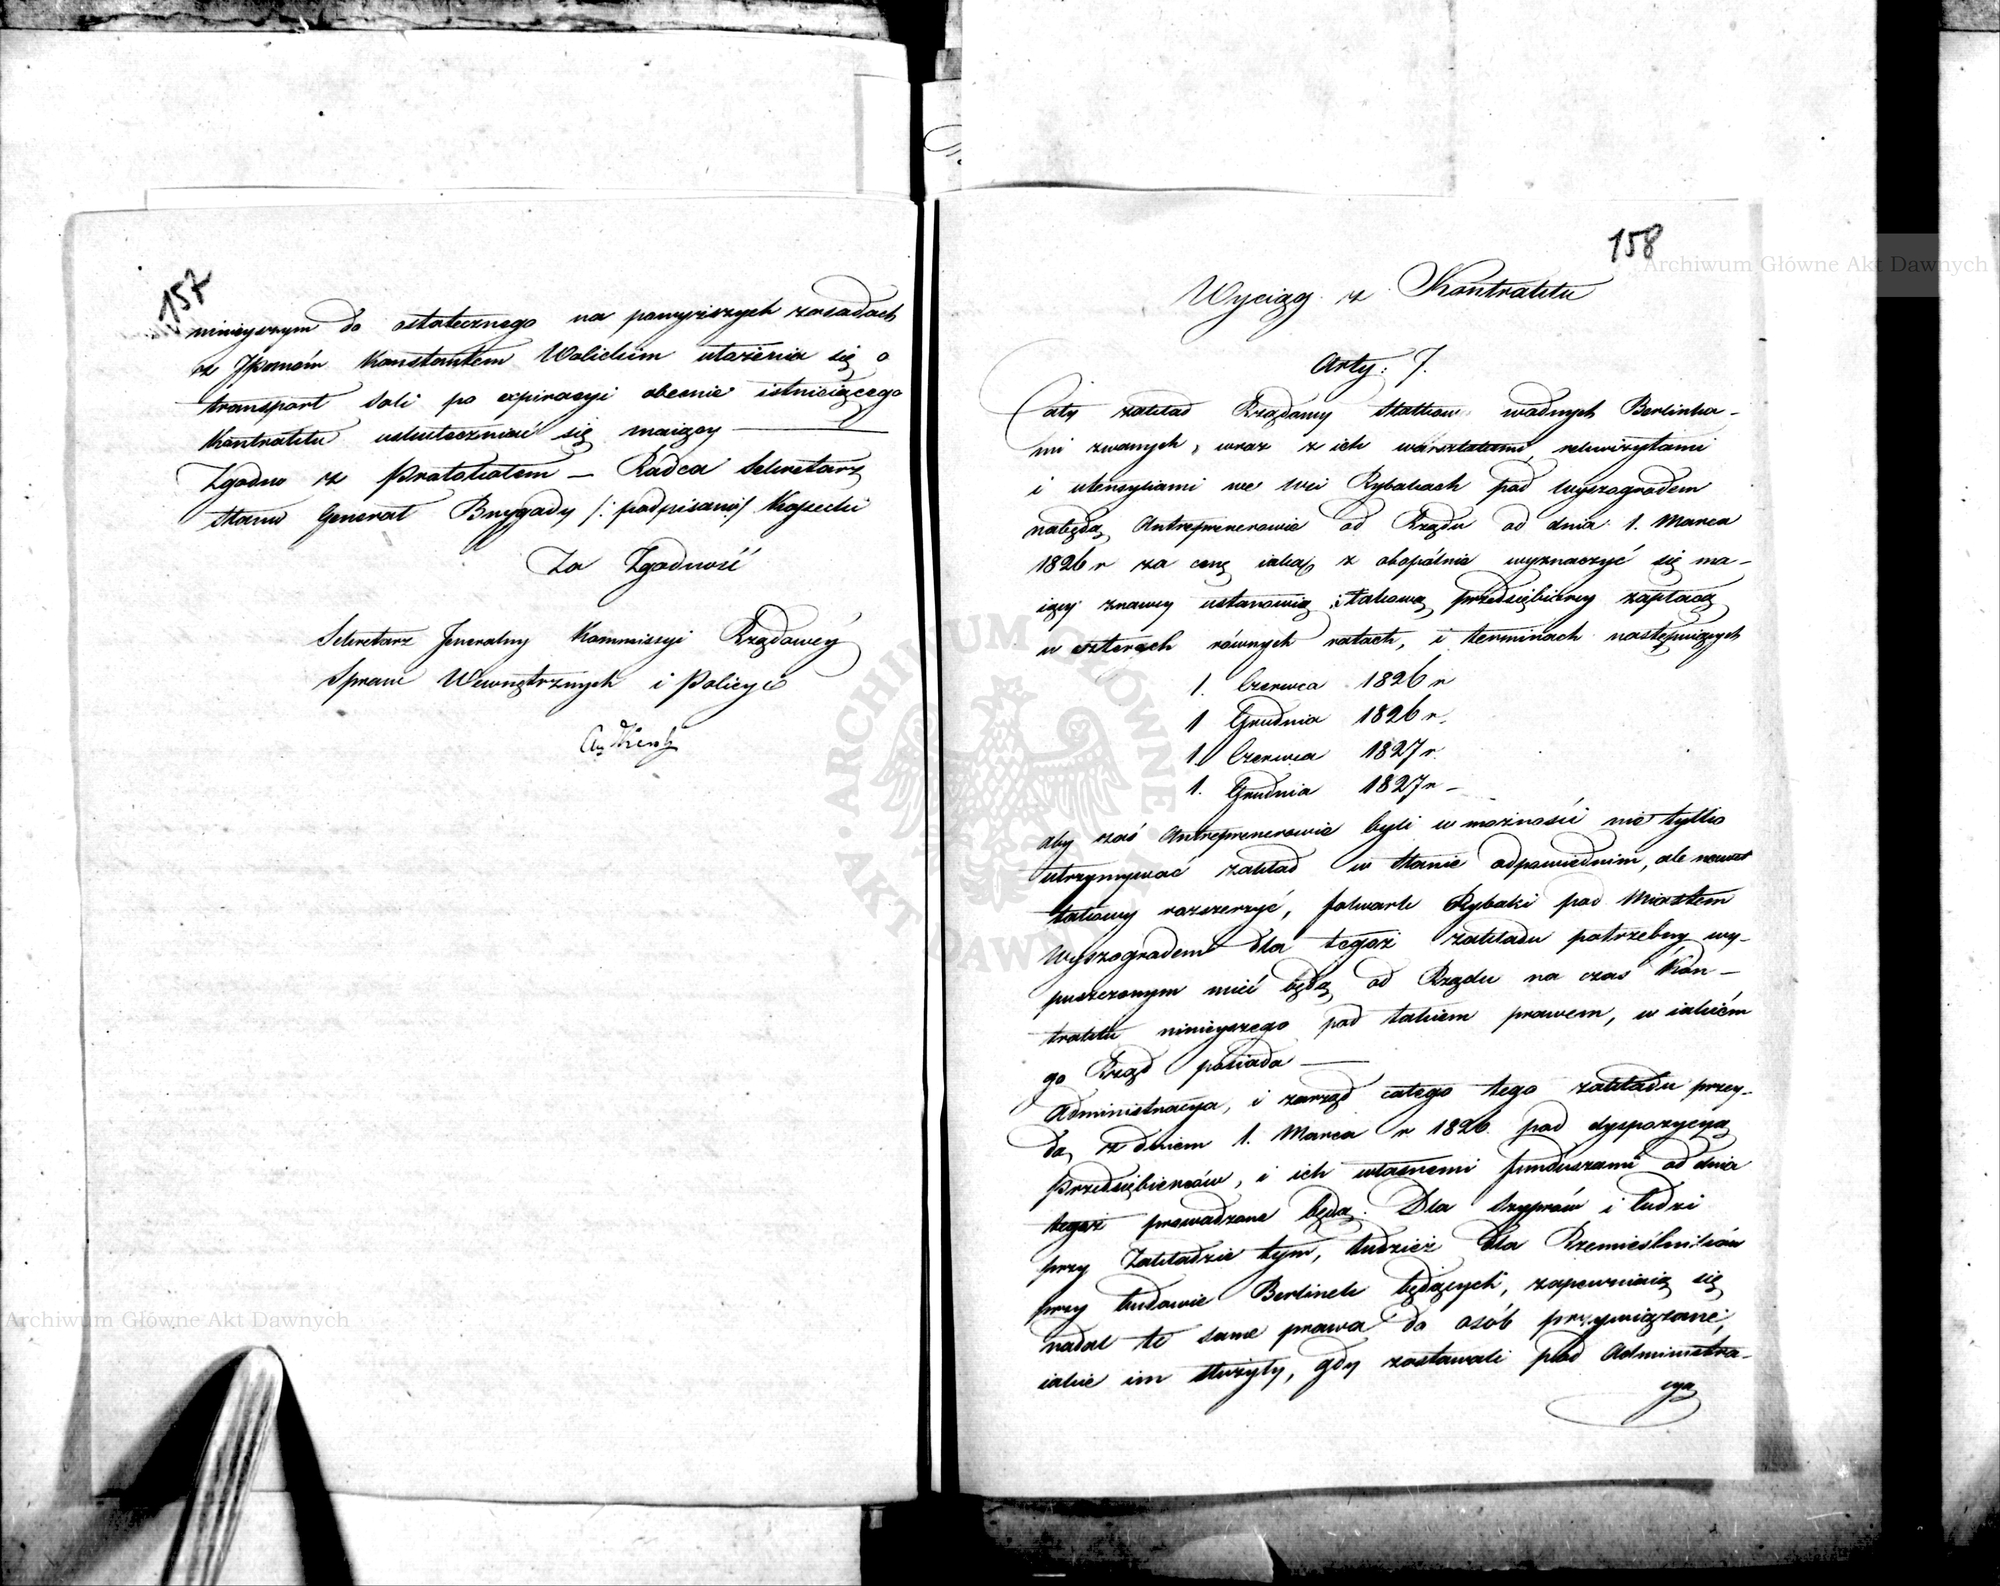 157
ninieyszym do ostatecznego na powyższych zasadach
z JPanem Konstantem Wolickim ułożenia się o
transport soli po expiracyi obecnie istnieiącego
Kontraktu uskutecznić się maiący —
Zgodno z Protokołem — Radca Sekretarz
Stanu Generał Brygady /: podpisano :/ Kossecki
Za Zgodność
Sekretarz Jeneralny Kommissyi Rządowey
Spraw Wewnętrznych i Policyi
158
Wyciąg z Kontraktu
Arty: 7.
Cały zakład Rządowy Statków wodnych Berlinka-
mi zwanych, wraz z ich warsztatami, rekwizytami
i utensyliami we Wsi Rybakach pod Wyszogrodem
nabędą Antreprenerowie od Rządu od dnia 1. Marca
1826 r za cenę iaką z obopólnie wyznaczyć się ma-
iący znawcy ustanowią, takową przedsiębiercy zapłacą
w czterech równych ratach, i terminach następuiących
1. Czerwca 1826 r
1 Grudnia 1826 r.
1. Czerwca 1827 r.
1. Grudnia 1827 r —
aby zaś Antreprenerowie byli w możności nie tylko
utrzymywać zakład w stanie odpowiednim, ale nawet
takowy rozszerzyć, folwark Rybaki pod Miastem
Wyszogrodem dla tegoż zakładu potrzebny wy-
puszczonym mieć będą od Rządu na czas Kon-
traktu ninieyszego pod takiem prawem, w iakiém
go Rząd posiada —
Administracya, i zarząd całego tego zakładu przey-
dą z dniem 1. Marca r 1826. pod dyspozycyą
Przedsiębierców, i ich własnemi funduszami od dnia
tegoż prowadzone będą. Dla Szyprów i ludzi
przy Zakładzie tym, tudzież dla Rzemieślników
przy budowie Berlinek będących, zapewniaią się
nadal te same prawa do osób przywiązane,
iakie im służyły, gdy zostawali pod Administra-
cyą
Archiwum Główne Akt Dawnych
Archiwum Główne Akt Dawnych
ARCHIWUM GŁÓWNE AKT DAWNYCH